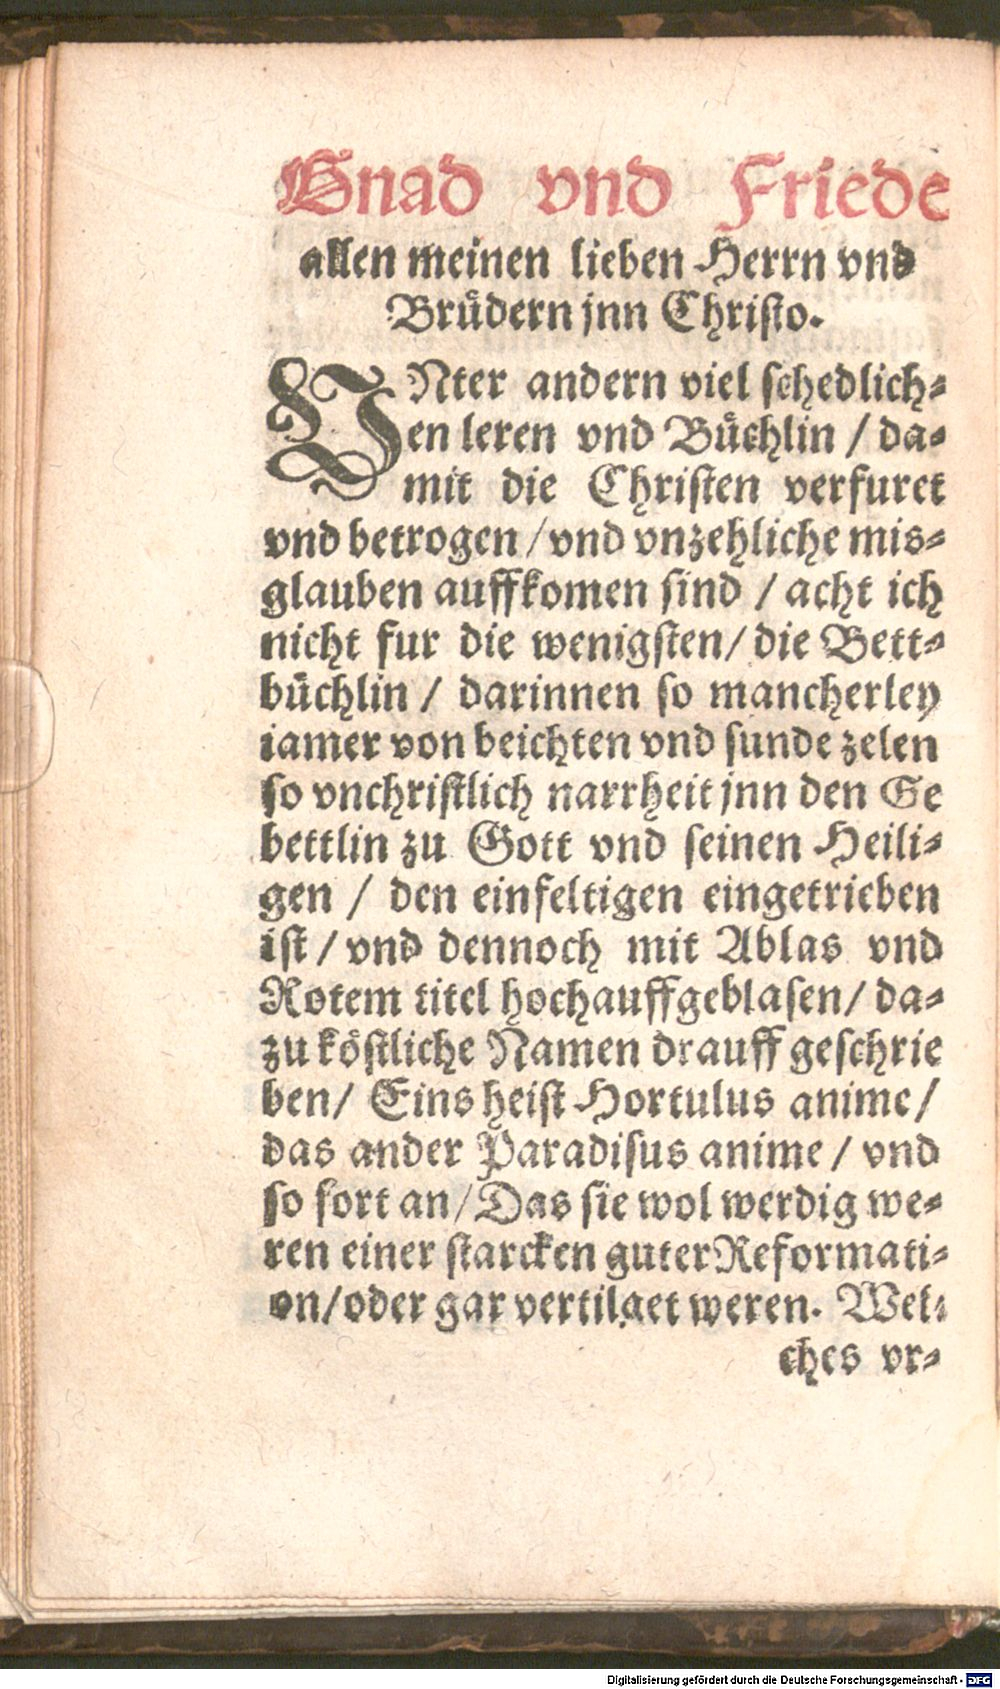 Gnad vnd Friede
allen meinen lieben Herrn vnd
Brüdern jnn Christo.
VNter andern viel schedlich-
en leren vnd Büchlin / da-
mit die Christen verfuret
vnd betrogen / vnd vnzehliche mis-
glauben auffkomen sind / acht ich
nicht fur die wenigsten / die Bett-
büchlin / darinnen so mancherley
iamer von beichten vnd sunde zelen
so vnchristlich narrheit jnn den Ge
bettlin zu Gott vnd seinen Heili-
gen / den einfeltigen eingetrieben
ist / vnd dennoch mit Ablas vnd
Rotem titel hochauffgeblasen / da-
zu köstliche Namen drauff geschrie
ben / Eins heist Hortulus anime /
das ander Paradisus anime / vnd
so fort an / Das sie wol werdig we-
ren einer starcken guter Reformati-
on / oder gar vertilget weren. Wel-
ches vr-
Digitalisierung gefördert durch die Deutsche Forschungsgemeinschaft - DFG